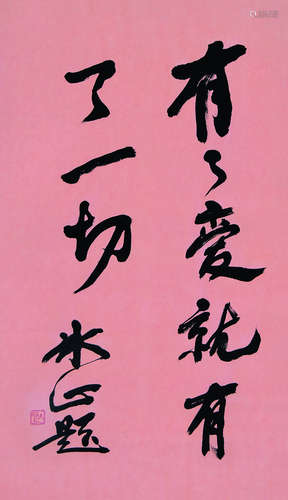 有了爱就有
了一切 冰心题